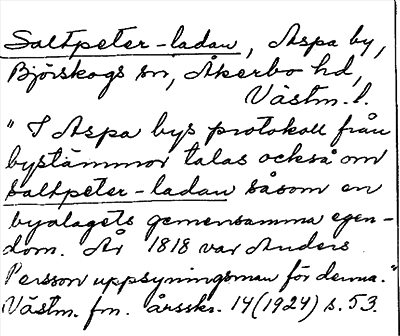 Saltpeter-ladan, Aspa by,
Björskogs sn, Åkerbo hd,
Västm. l.
"I Aspa bys protokoll från
bystämmor talas också om
saltpeter-ladan såsom en
byalagets gemensamma egen-
dom. År 1818 var Anders
Persson uppsyningsman för denna."
Västm. fm. årsskr. 14 (1924) s. 53.